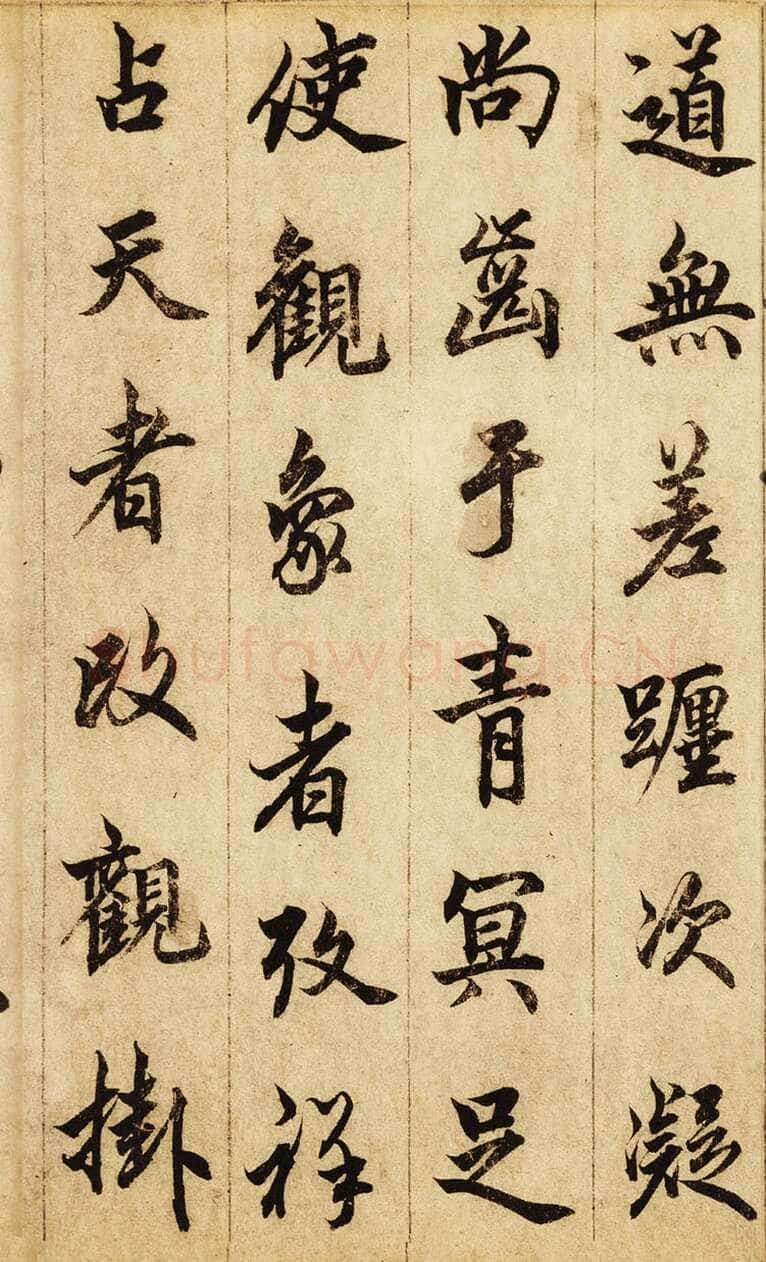 道無差躔次凝
尚齒于青冥足
使觀象者攷祥
占天者改觀掛
shufawang.CN